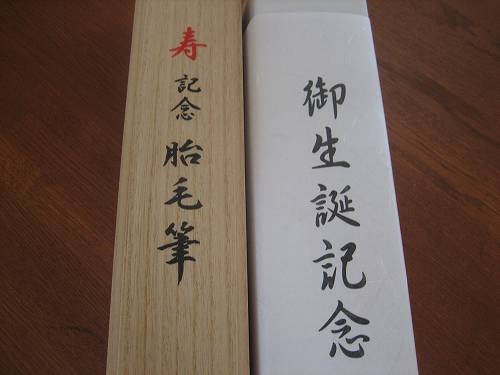 御生誕記念
寿 記念 胎毛筆